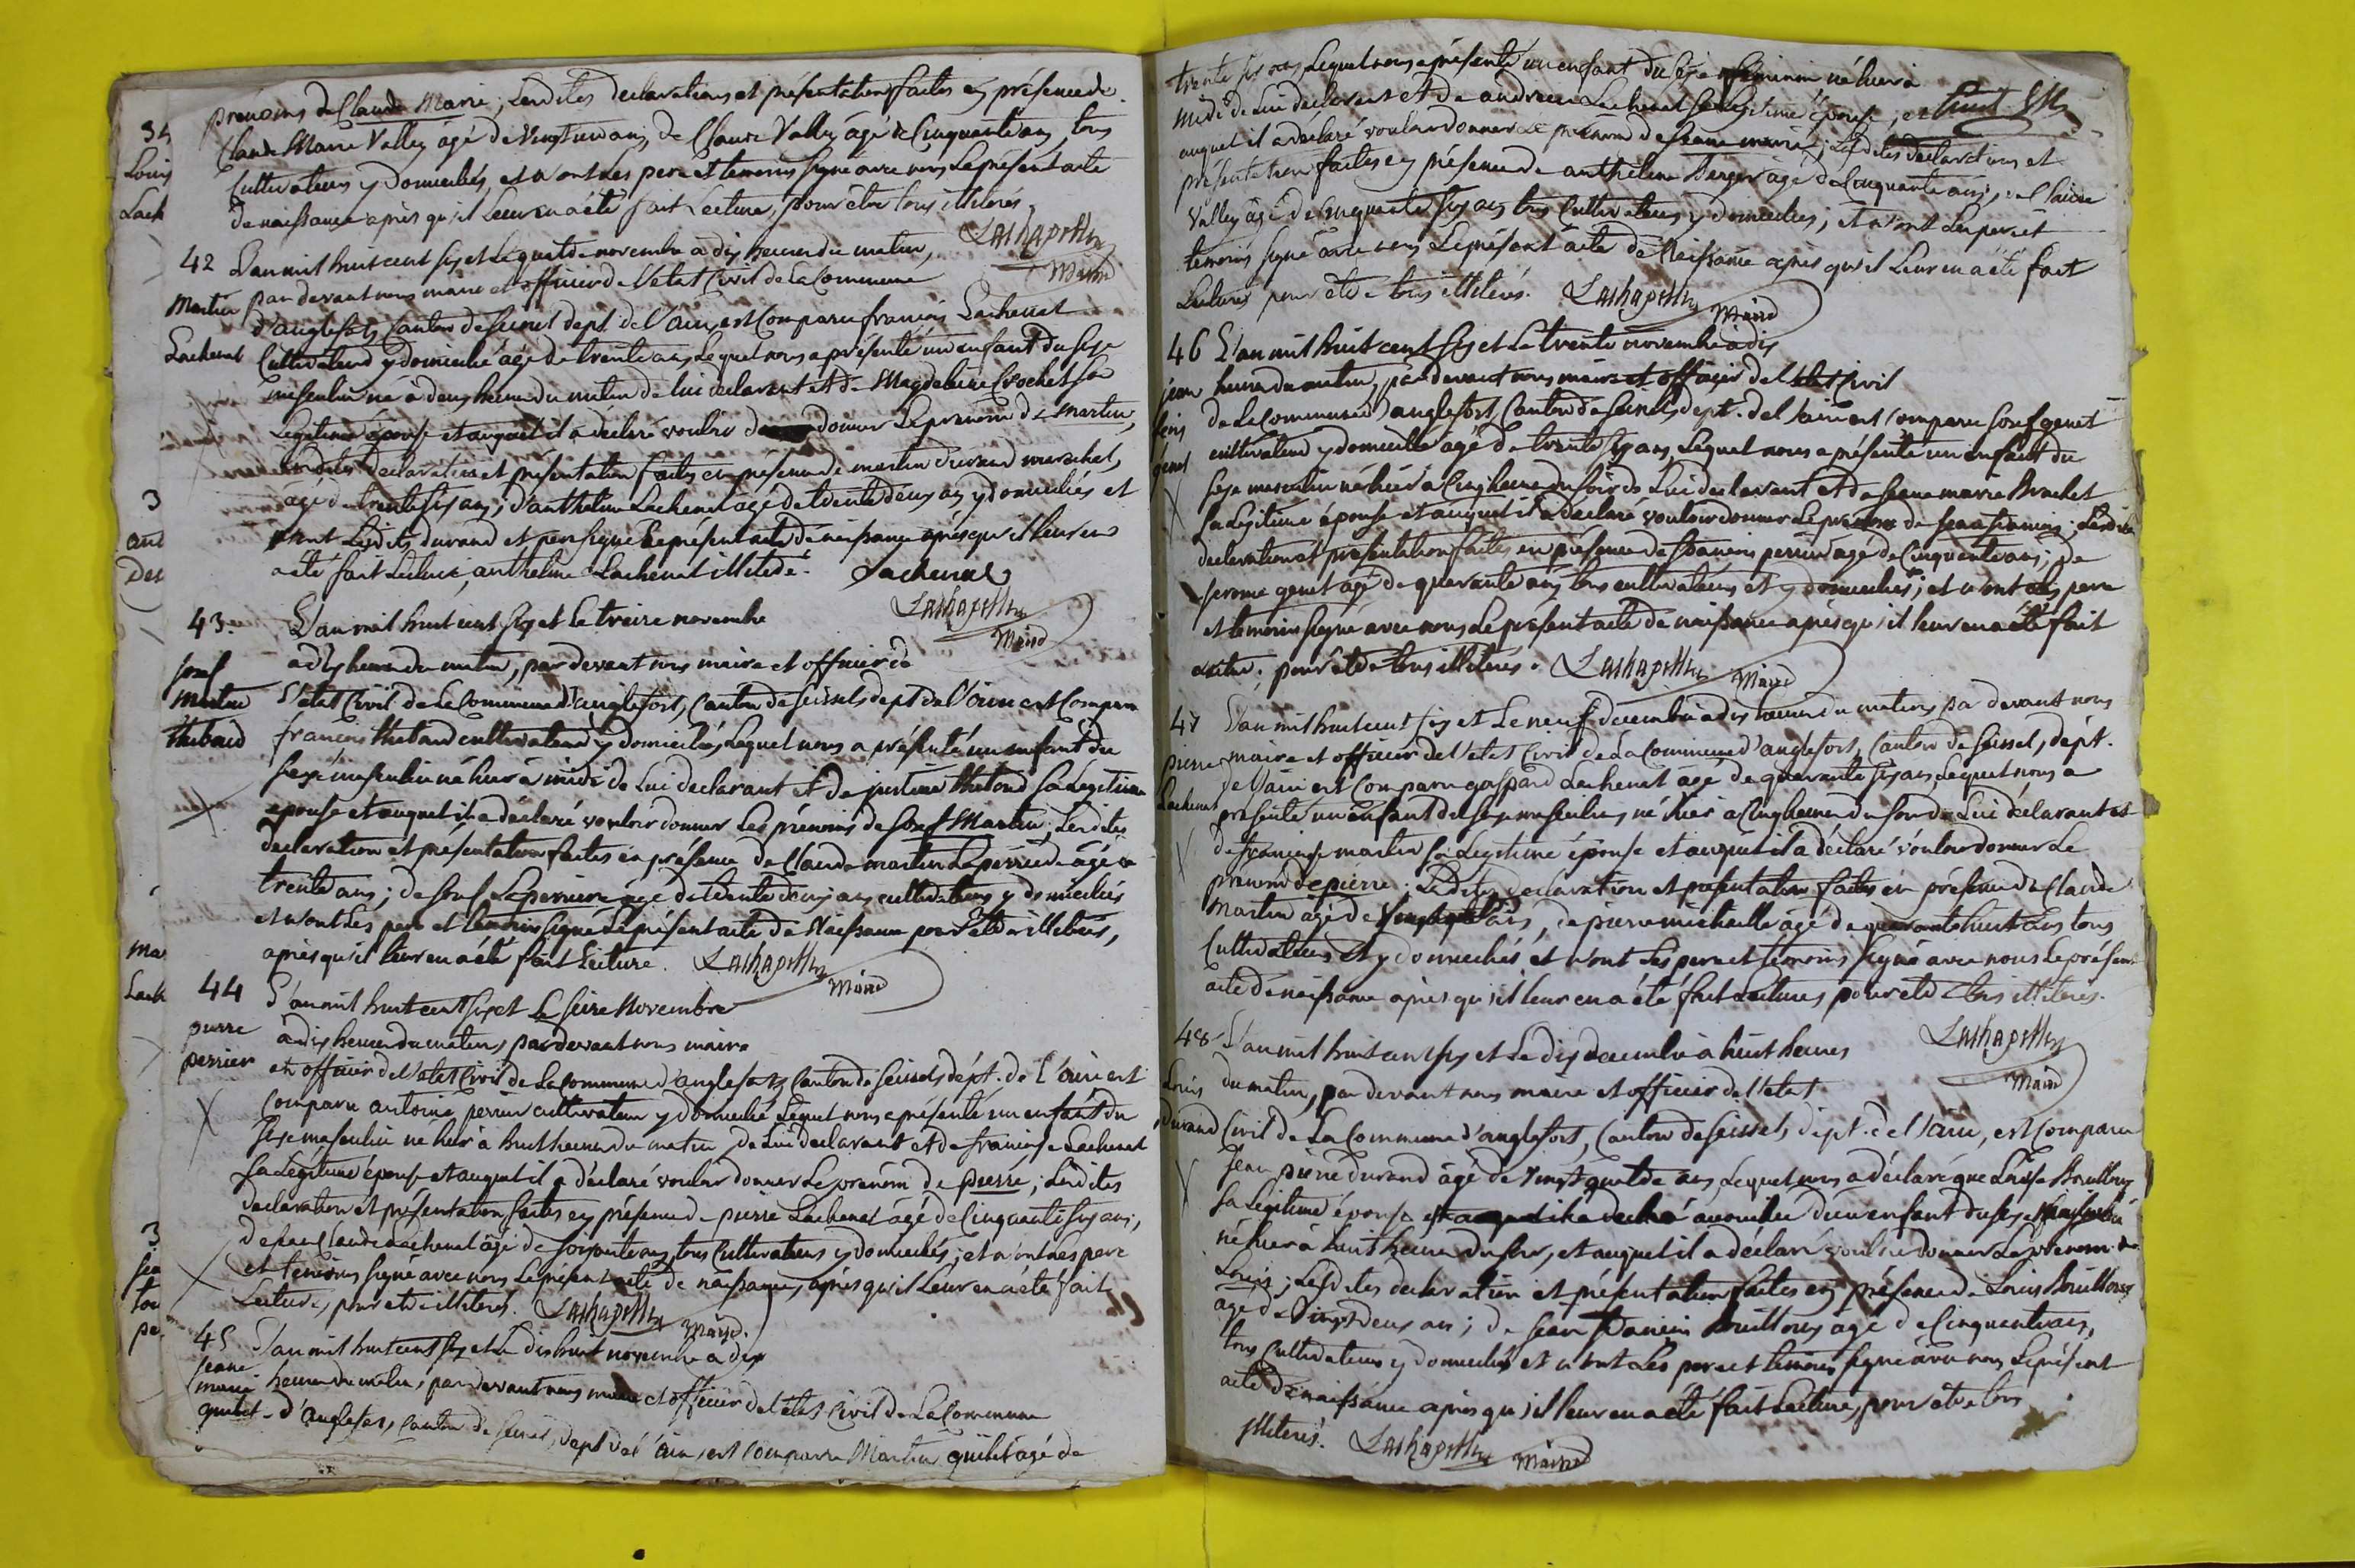 prenoms de Claude Marie; Lesdites declarations et présentation faites en présence de
Claude Marie Valley agé de vingt un ans, de Claude Valley agé de Cinquante ans, tous
Cultivateurs y domiciliés, et n'ont Les pere et temoins signé avec nous Le présent acte
de naissance après qu'il Leur en a été fait Lecture, pour être tous illiterés.
Lachapelle
Maire
42 L'an mil huit cent six et Le quatre novembre a dix heures du matin,
Martin
Lachenal
par devant nous maire et officier de l'etat Civil de La Commune
d'anglefort, Canton de Seissel dept. de l'ain, est Comparu françois Lachenal
Cultivateur y domicilié agé de trente ans, Lequel nous a présenté un enfant du sexe
masculin né a deux heures du matin de lui declarant et de Magdeleine Crochet sa
Legitime épouse et auquel il a déclaré vouloir donner Le prenom de Martin,
Lesdites declaration et présentation faites en présence de martin durand marechal,
agé de trente six ans; d'anthelme Lachenal agé de trente deux ans y domiciliés et
ont Lesdits durand et pere signé Le présent acte de naissance après qu'il leur en
a été fait Lecture, anthelme Lachenal illiteré. Lachenal
Lachapelle
Maire
43. L'an mil huit cent six et Le treize novembre
josef
Martin
thibaud
a dix heures du matin, par devant nous maire et officier de
l'etat Civil de La Commune d'anglefort, Canton de Seissel dept de l'ain est Comparu
françois cultivateur y domicilié, Lequel nous a présenté un enfant du
sexe masculin né hier à midi de Lui declarant et de justine sa Legitime
épouse et auquel il a déclaré vouloir donner Les prénoms de Josef Martin; Lesdites
declaration et présentation faites en présence de Claude martin Laperriere agé de
trente ans; de Josef Laperriere agé de trente deux ans cultivateurs y domiciliés
et n'ont Les pere et temoins signé Le présent acte de Naissance pour etre illiterés,
après qu'il leur en a été fait Lecture. Lachapelle
Maire
44 L'an mil huit cent six et Le seize Novembre
pierre
perrier
à dix heures du matin, par devant nous maire
et officier de l'etat Civil de La Commune d'anglefort, Canton de Seissel, dépt. de l'ain est
Comparu antoine perrier cultivateur y domicilié Lequel nous a présenté un enfant du
sexe masculin né hier à huit heures du matin de Lui declarant et de françoise Lachenal
sa Légitime épouse et auquel il a déclaré vouloir donner Le prenom de pierre; Lesdites
declaration et présentation faites en présence de pierre Lachenal agé de Cinquante six ans,
de jean Claude Lachenal âgé de soixante ans, tous Cultivateurs y domiciliés; et n'ont Les pere
et temoins signé avec nous Le présent acte de naissance, après qu'il Leur en a été fait
Lecture, pour etre illiterés. Lachapelle Maire.
45 L'an mil huit cent six et Le dix huit novembre a dix
jeane
marie
heures du matin, par devant nous maire et officier de l'état Civil de La Commune
d'anglefort, Canton de Seissel, dept de l'ain est Comparu Martin agé de
trente six ans, Lequel nous a présenté un enfant du sexe féminin né hier à
midi de Lui declarant et de andrea Lachenal sa Legitime épouse; et
auquel il a déclaré vouloir donner Le prénom de jeane marie; Lesdites declarations et
présentation faites en présence de anthelme Berger agé de Cinquante ans; de Claude
Valley agé de Cinquante six ans tous Cultivateurs y domiciliés; et n'ont Les pere et
temoins signé avec nous Le présent acte de Naissance après qu'il Leur en a été fait
Lecture pour etre tous illiterés. Lachapelle Maire
46 L'an mil huit cent six et Le trente novembre à dix
jean
fois
genet
heures du matin, par devant nous maire et officier de l'etat Civil
de La Commune d'anglefort, Canton de Seissel, dept. de l'ain est Comparu Josef genet
cultivateur y domicilié agé de trente six ans, Lequel nous a présenté un enfant du
sexe masculin né hier à Cinq heures du soir de Lui declarant et de jeane marie Brachet
sa Légitime épouse et auquel il a déclaré vouloir donner Le prénom de jean françois; Lesdites
declaration et présentation faites en présence de françois perrier agé de Cinquante ans; de
jerome genet agé de quarante ans tous cultivateurs et y domiciliés; et n'ont Les pere
et temoins signé avec nous Le présent acte de naissance après qu'il leur en a été fait
Lecture, pour être tous illiterés. Lachapelle Maire
47 L'an mil huit cent six et Le neuf décembre à dix heures du matin, par devant nous
pierre
Lachenal
maire et officier de l'etat Civil de La Commune d'anglefort, Canton de Seissel, dépt.
de l'ain est Comparu gaspard Lachenal âgé de quarante six ans, Lequel nous a
présenté un enfant de sexe masculin, né hier à Cinq heures du soir de Lui déclarant et
de françoise martin sa Legitime épouse et auquel il a déclaré vouloir donner Le
prenom de pierre. Lesdites declaration et présentation faites en présence de Claude
Martin agé de ans, de pierre michaille âgé de quarante huit ans tous
Cultivateurs et y domiciliés et n'ont Les pere et temoins signé avec nous Le présent
acte de naissance après qu'il leur en a été fait Lecture, pour etre tous illiterés.
Lachapelle
Maire
48 L'an mil huit cent six et Le dix decembre à huit heures
Louis
durand
du matin, par devant nous maire et officier de l'etat
Civil de La Commune d'anglefort, Canton de Seissel, dépt. de l'ain, est Comparu
Jean pierre durand âgé de vingt quatre ans, Lequel nous a déclaré que
sa Légitime épouse accouchée d'un enfant du sexe Masculin
né hier à huit heures du soir, et auquel il a déclaré vouloir donner Le prenom de
Louis; Lesdites declaration et présentation faites en présence de Louis
agé de Vingt deux ans; de jean françois agé de Cinquante ans,
tous Cultivateurs y domiciliés et n'ont Les pere et temoins signé avec nous Le présent
acte de naissance après qu'il leur en a été fait Lecture, pour être tous
illiterés. Lachapelle Maire